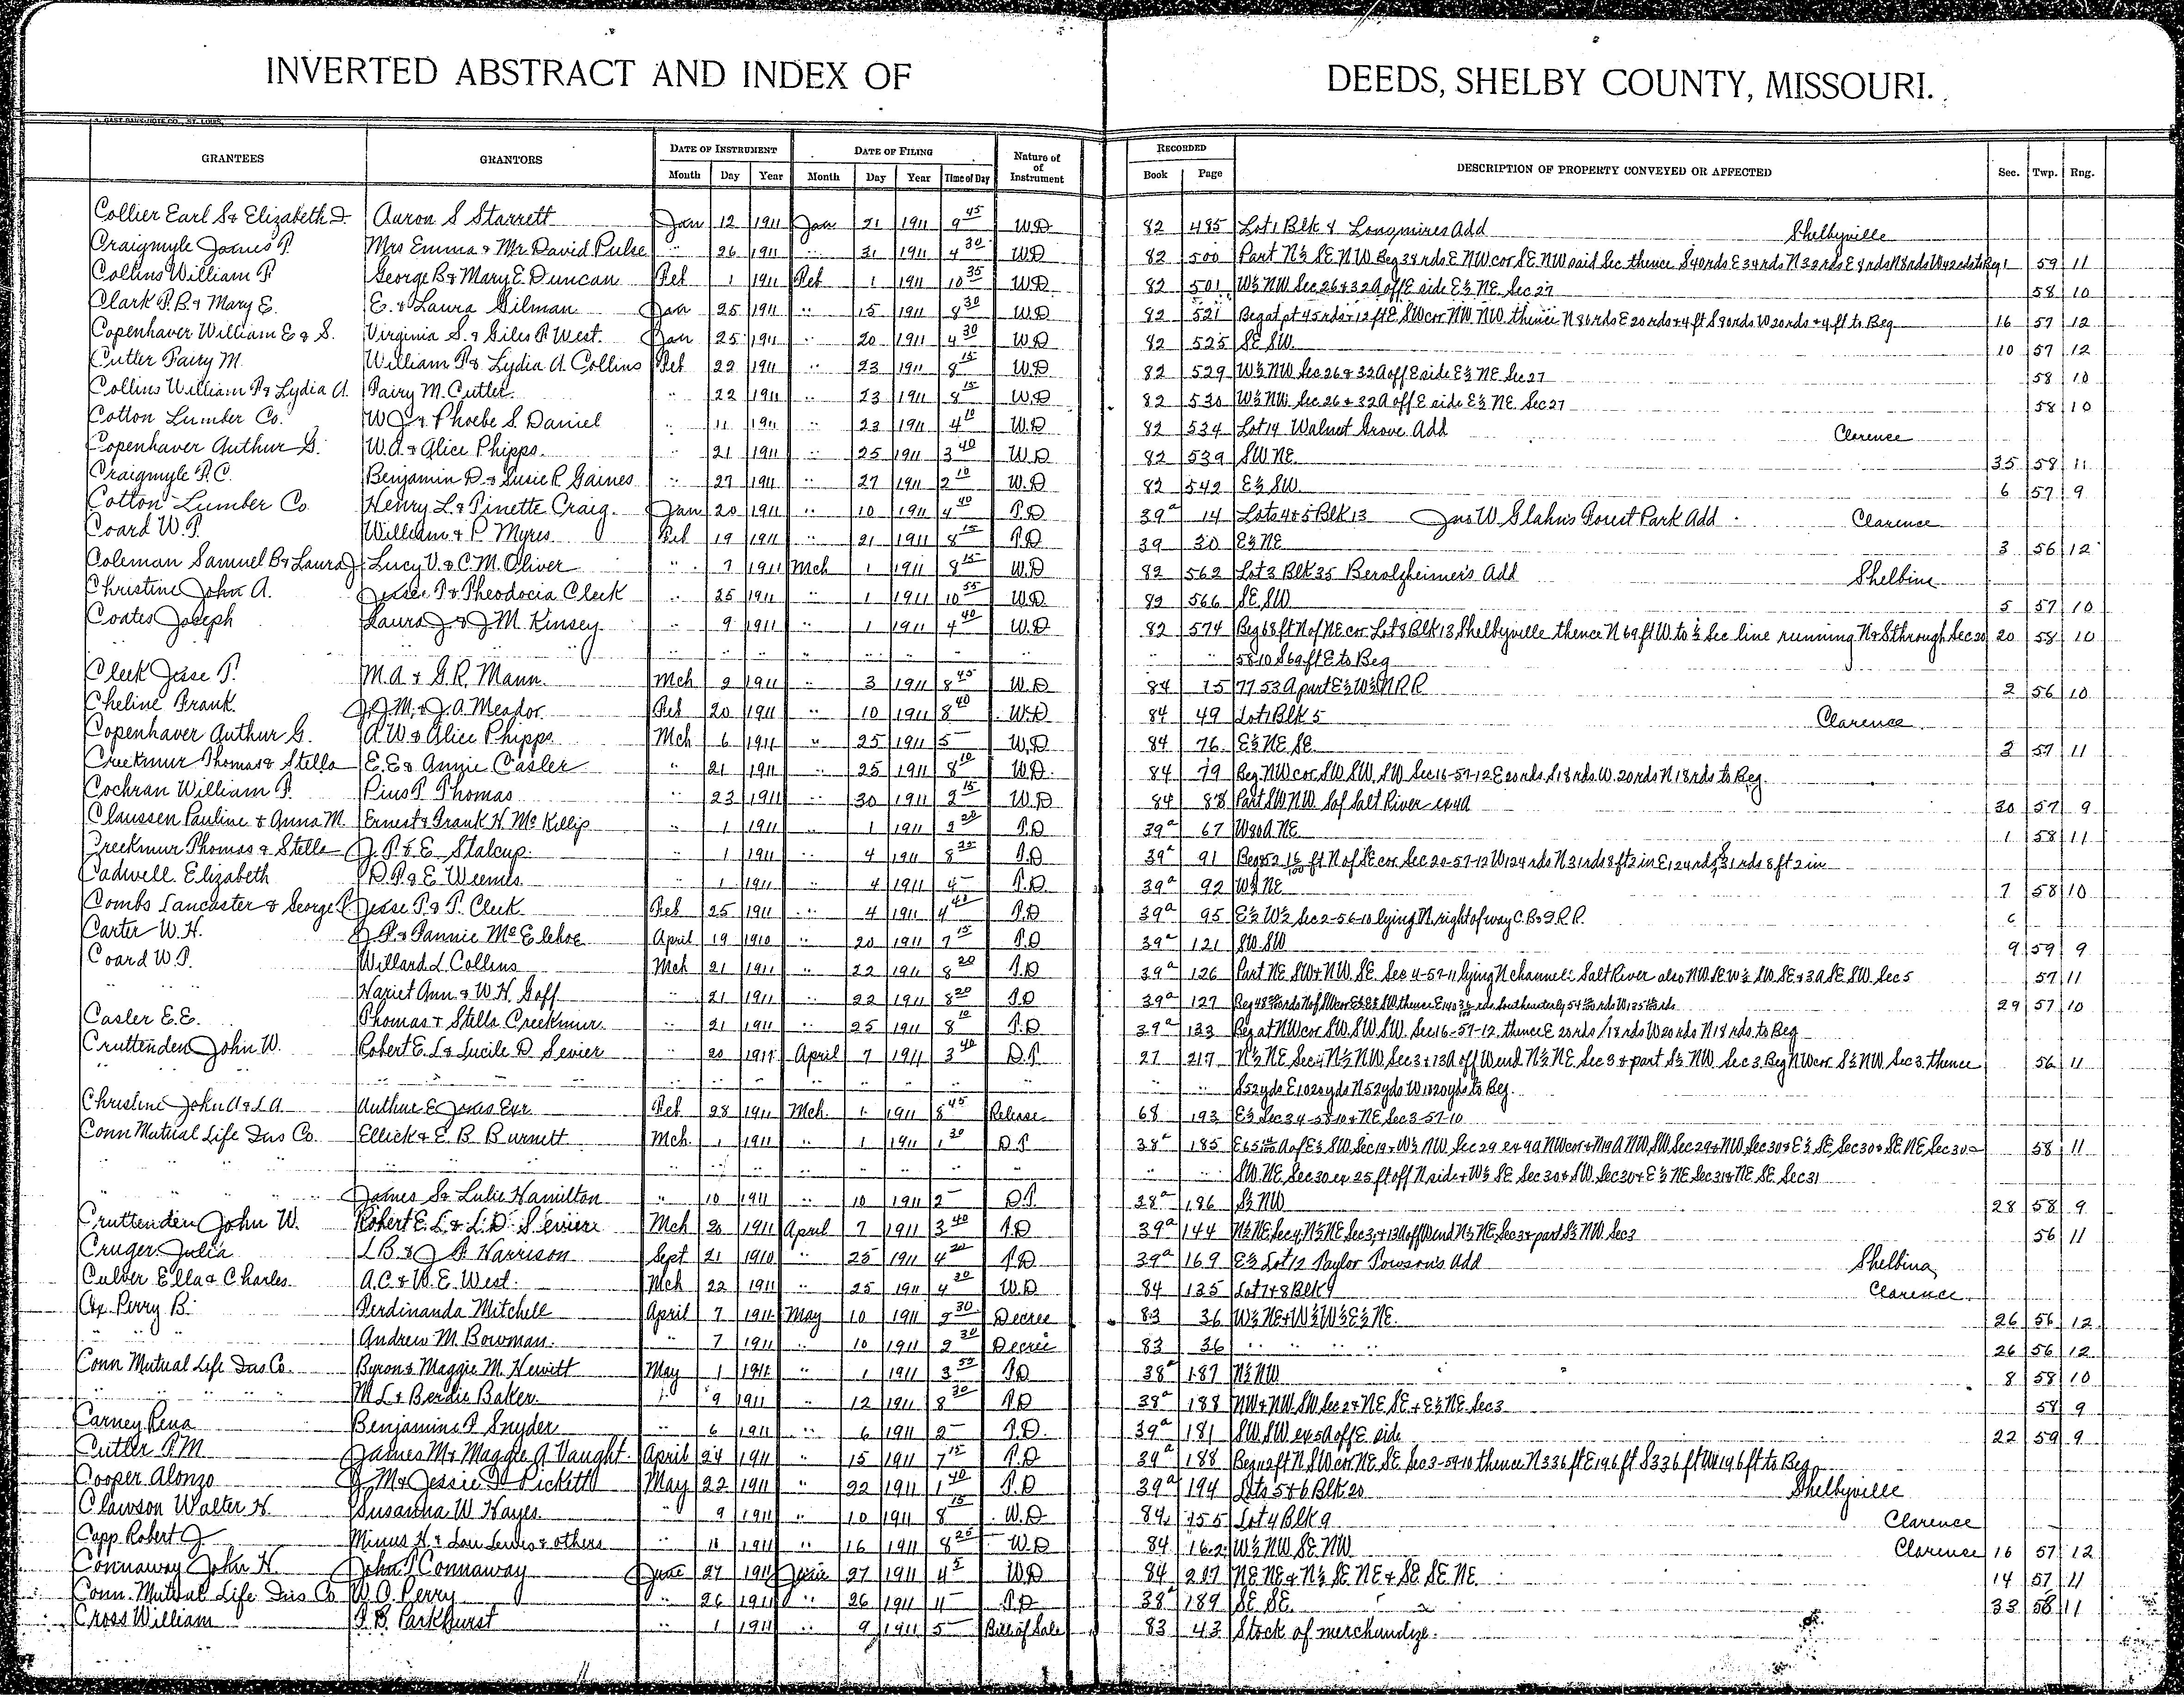 INVERTED ABSTRACT AND INDEX OF DEEDS, SHELBY COUNTY, MISSOURI.
GRANTEES GRANTORS DATE OF INSTRUMENT DATE OF FILING Nature of of Instrument RECORDED DESCRIPTION OF PROPERTY CONVEYED OR AFFECTED Sec. Twp. Rng.
Month Day Year Month Day Year Time of Day Book Page
Collier Earl S & Elizabeth J. Aaron S Starrett Jan 12 1911 Jan 21 1911 9 45 WD 82 485 Lot 1 Blk 8 Longmires Add Shelbyville
Craigmyle James P. Mrs Emma & Mr David Pulse " 26 " 31 1911 4 30 WD 82 500 Part N½ SE NW Beg 38 rds E NW cor SE NW said Sec thence S 40 rds E 34 rds N 32 rds E 8 rds N 8 rds W 42 rds to Beg 1 59 11
Collins William P George B & Mary E Duncan Feb 1 1911 Feb 1 1911 10 35 WD 82 501 W½ NW Sec 26 & 32 A off E side E½ NE Sec 27 58 10
Clark P.B. & Mary E. E. & Laura Gilman Jan 25 1911 " 15 1911 8 30 WD 82 521 Beg at pt 45 rds + 12 ft E SW cor NW NW thence N 80 rds E 20 rds + 4 ft S 80 rds W 20 rds + 4 ft to Beg 16 57 12
Copenhaver William E & S. Virginia S. & Giles P West. Jan 25 1911 " 20 1911 4 30 WD 82 525 SE SW 10 57 12
Cutler Fairy M. William P & Lydia A Collins Feb 22 1911 " 23 1911 8 15 WD 82 529 W½ NW Sec 26 & 32 A off E side E½ NE Sec 27 58 10
Collins William P & Lydia A. Fairy M. Cutler " 22 1911 " 23 1911 8 15 WD 82 530 W½ NW Sec 26 & 32 A off E side E½ NE Sec 27 58 10
Cotton Lumber Co. W J & Phoebe S. Daniel " 11 1911 " 23 1911 4 10 W.D 82 534 Lot 14 Walnut Grove Add Clarence
Copenhaver Authur G. W.A. & Alice Phipps " 21 1911 " 25 1911 3 40 W.D 82 539 SW NE 35 58 11
Craigmyle P.C. Benjamin D. & Susie R Gaines " 27 1911 " 27 1911 2 10 W.D 82 542 E½ SW 6 57 9
Cotton Lumber Co Henry L. & Finette Craig. Jan 20 1911 " 10 1911 4 40 T.D 39a 14 Lots 4 & 5 Blk 13 Jno W Slahns Forest Park Add Clarence
Coard W.P. William & P Myres Feb 19 1911 " 21 1911 8 15 T.D 39 30 E½ NE 3 56 12
Coleman Samuel B & Laura J Lucy V. & C.M. Oliver " 7 1911 Mch 1 1911 8 15 W.D 82 562 Lot 3 Blk 35 Berolzheimer's Add Shelbina
Christine John A. Jesse P & Theodocia Cleek " 25 1911 " 1 1911 10 55 W.D 82 566 SE SW 5 57 10
Coates Joseph Laura J & J M. Kinsey " 9 1911 " 1 1911 4 40 W.D 82 574 Beg 68 ft N of NE cor Lot 8 Blk 13, Shelbyville thence N 69 ft W. to ½ Sec line running N & S through Sec 20 20 58 10
" " " " " " " " " " " 58-10 S 69 ft E to Beg
Cleek Jesse P. M.A & G.R. Mann Mch 2 1911 " 3 1911 8 45 W.D 84 15 77 53 A part E½ W½ N R R 2 56 10
Cheline Frank. J.J.M. & J.A. Meador Feb 20 1911 " 10 1911 8 40 W.D 84 49 Lot 1 Blk 5 Clarence
Copenhaver Authur G. A.W & Alice Phipps Mch 6 1911 " 25 1911 5 — W.D 84 76 E½ NE SE 3 57 11
Creekmur Thomas & Stella E.E & Annie Casler " 21 1911 " 25 1911 8 10 W.D. 84 79 Beg. NW cor SW SW SW Sec 16-57-12 E 20 rds S 18 rds W. 20 rds N 18 rds to Beg.
Cochran William P. Pius P Thomas " 23 1911 " 30 1911 2 15 W.D 84 88 Part SW NW S of Salt River ex 4 A 30 57 9
Claussen Pauline & Anna M. Ernest & Frank H Mc Killip " 1 1911 " 1 1911 2 20 T.D 39a 67 W 80 A NE 1 58 11
Creekmur Thomas & Stella J. P. & E Stalcup. " 1 1911 " 4 1911 8 35 T.D 39a 91 Beg 852 16/100 ft N of SE cor Sec 20-57-12 W 124 rds N 31 rds 8 ft 2 in E 124 rds S 31 rds 8 ft 2 in
Cadwell Elizabeth D. P. & E Weems " 1 1911 " 4 1911 4 — T.D 39a 92 W½ NE 7 58 10
Combs Lancaster & George P Jesse P & P. Cleek Feb 25 1911 " 4 1911 4 40 T.D 39a 95 E½ W½ Sec 2-56-10 lying N right of way C.B. & Q R.R. 6
Carter W.H. J P & Fannie McElehoe April 19 1910 " 20 1911 7 15 T.D 39a 121 SW SW 9 59 9
Coard W.P. Willard L Collins Mch 21 1911 " 22 1911 8 20 T.D 39a 126 Part NE SW & NW SE Sec 4-57-11 lying N channel Salt River also NW SE W½ SW SE & 3 A SE SW Sec 5 57 11
" " Hariet Ann & W.H Goff " 21 1911 " 22 1911 8 20 T.D 39a 127 29 57 10
Casler E.E. Thomas & Stella Creekmur " 21 1911 " 25 1911 8 10 T.D 39a 133 Beg at NW cor SW SW SW Sec 16-57-12, thence E 20 rds S 18 rds W 20 rds N 18 rds to Beg
Cruttenden John W. Robert E. L & Lucile D Sevier " 20 1911 April 7 1911 3 40 D.T. 27 217 N½ NE Sec 4, N½ NW Sec 3 & 13 A off W end N½ NE Sec 3 & part S½ NW Sec 3 Beg NW cor S½ NW Sec 3, thence 56 11
" " " " " " " " " " " S 52 yds E 1020 yds N 52 yds W 1020 yds to Beg.
Christine John A & L A Authur E Jones Exr Feb 28 1911 Mch. 1 1911 8 45 Release 68 193 E½ Sec 34-58-10 & NE Sec 3-57-10
Conn Mutual Life Ins Co. Ellick & E. B Burnett Mch 1 1911 " 1 1911 1 30 D.T 38a 185 58 11
" " " " " " " " " " " SW NE Sec 30 ex 25 ft off N side & W½ SE Sec 30 & SW Sec 30 & E½ NE Sec 31 & NE SE Sec 31
" " James S & Lulie Hamilton " 10 1911 " 10 1911 2 — D.T. 38a 186 S½ NW 28 58 9
Cruttenden John W. Robert E. L & L.D. Seviere Mch 20 1911 April 7 1911 3 40 T.D 39a 144 N½ NE, Sec 4, N½ NE Sec 3, & 13 A off W end N½ NE, Sec 3 & part S½ NW Sec 3 56 11
Cruger Julia L B & J H Harrison Sept 21 1910 " 25 1911 4 20 T.D 39a 169 E½ Lot 12 Taylor Towson's Add Shelbina
Culver Ella & Charles A.C. & W.E. West. Mch 22 1911 " 25 1911 4 20 W.D 84 135 Lot 7 & 8 Blk 9 Clarence
Cox Perry B. Ferdinanda Mitchell April 7 1911 May 10 1911 9 30 Decree 83 36 W½ NE & W½ W½ E½ NE 26 56 12
" " Andrew M. Bowman. " 7 1911 " 10 1911 9 30 Decree 83 36 " " " " 26 56 12
Conn Mutual Life Ins Co. Byron & Maggie M. Hewitt May 1 1911 " 1 1911 3 50 T.D 38a 187 N½ NW 8 58 10
" " " " M L & Berdie Baker " 9 1911 " 12 1911 8 30 T.D 38a 188 NW & NW SW Sec 2 & NE SE & E½ NE Sec 3 58 9
Carney Rena Benjamin F Snyder " 6 1911 " 6 1911 2 — T.D. 39a 181 SW SW ex 5 A off E side 22 59 9
Cutler F M James M & Maggie A Vaught April 24 1911 " 15 1911 7 15 T.D 39a 188 Beg 112 ft N SW cor NE SE Sec 3-59-10 thence N 336 ft E 196 ft S 336 ft W 196 ft to Beg
Cooper Alonzo J M & Jessie D Pickett May 22 1911 " 22 1911 1 40 T.D 39a 194 Lots 5 & 6 Blk 20 Shelbyville
Clawson Walter H. Susanna W Hayes " 9 1911 " 10 1911 8 15 W.D 84 155 Lot 4 Blk 9 Clarence
Capp Robert J Minus H & Lou Lewis & others " 11 1911 " 16 1911 8 25 W.D 84 162 W½ NW SE NW Clarence 16 57 12
Connaway John H. John T Connaway June 27 1911 June 27 1911 4 5 WD 84 207 NE NE & N½ SE NE & SE SE NE 14 57 11
Conn. Mutual Life Ins Co W.O. Perry " 26 1911 " 26 1911 4 — T.D 38a 189 SE SE 33 58 11
Cross William F.B. Parkhurst " 1 1911 " 9 1911 5 — Bill of Sale 83 43 Stock of merchandize.